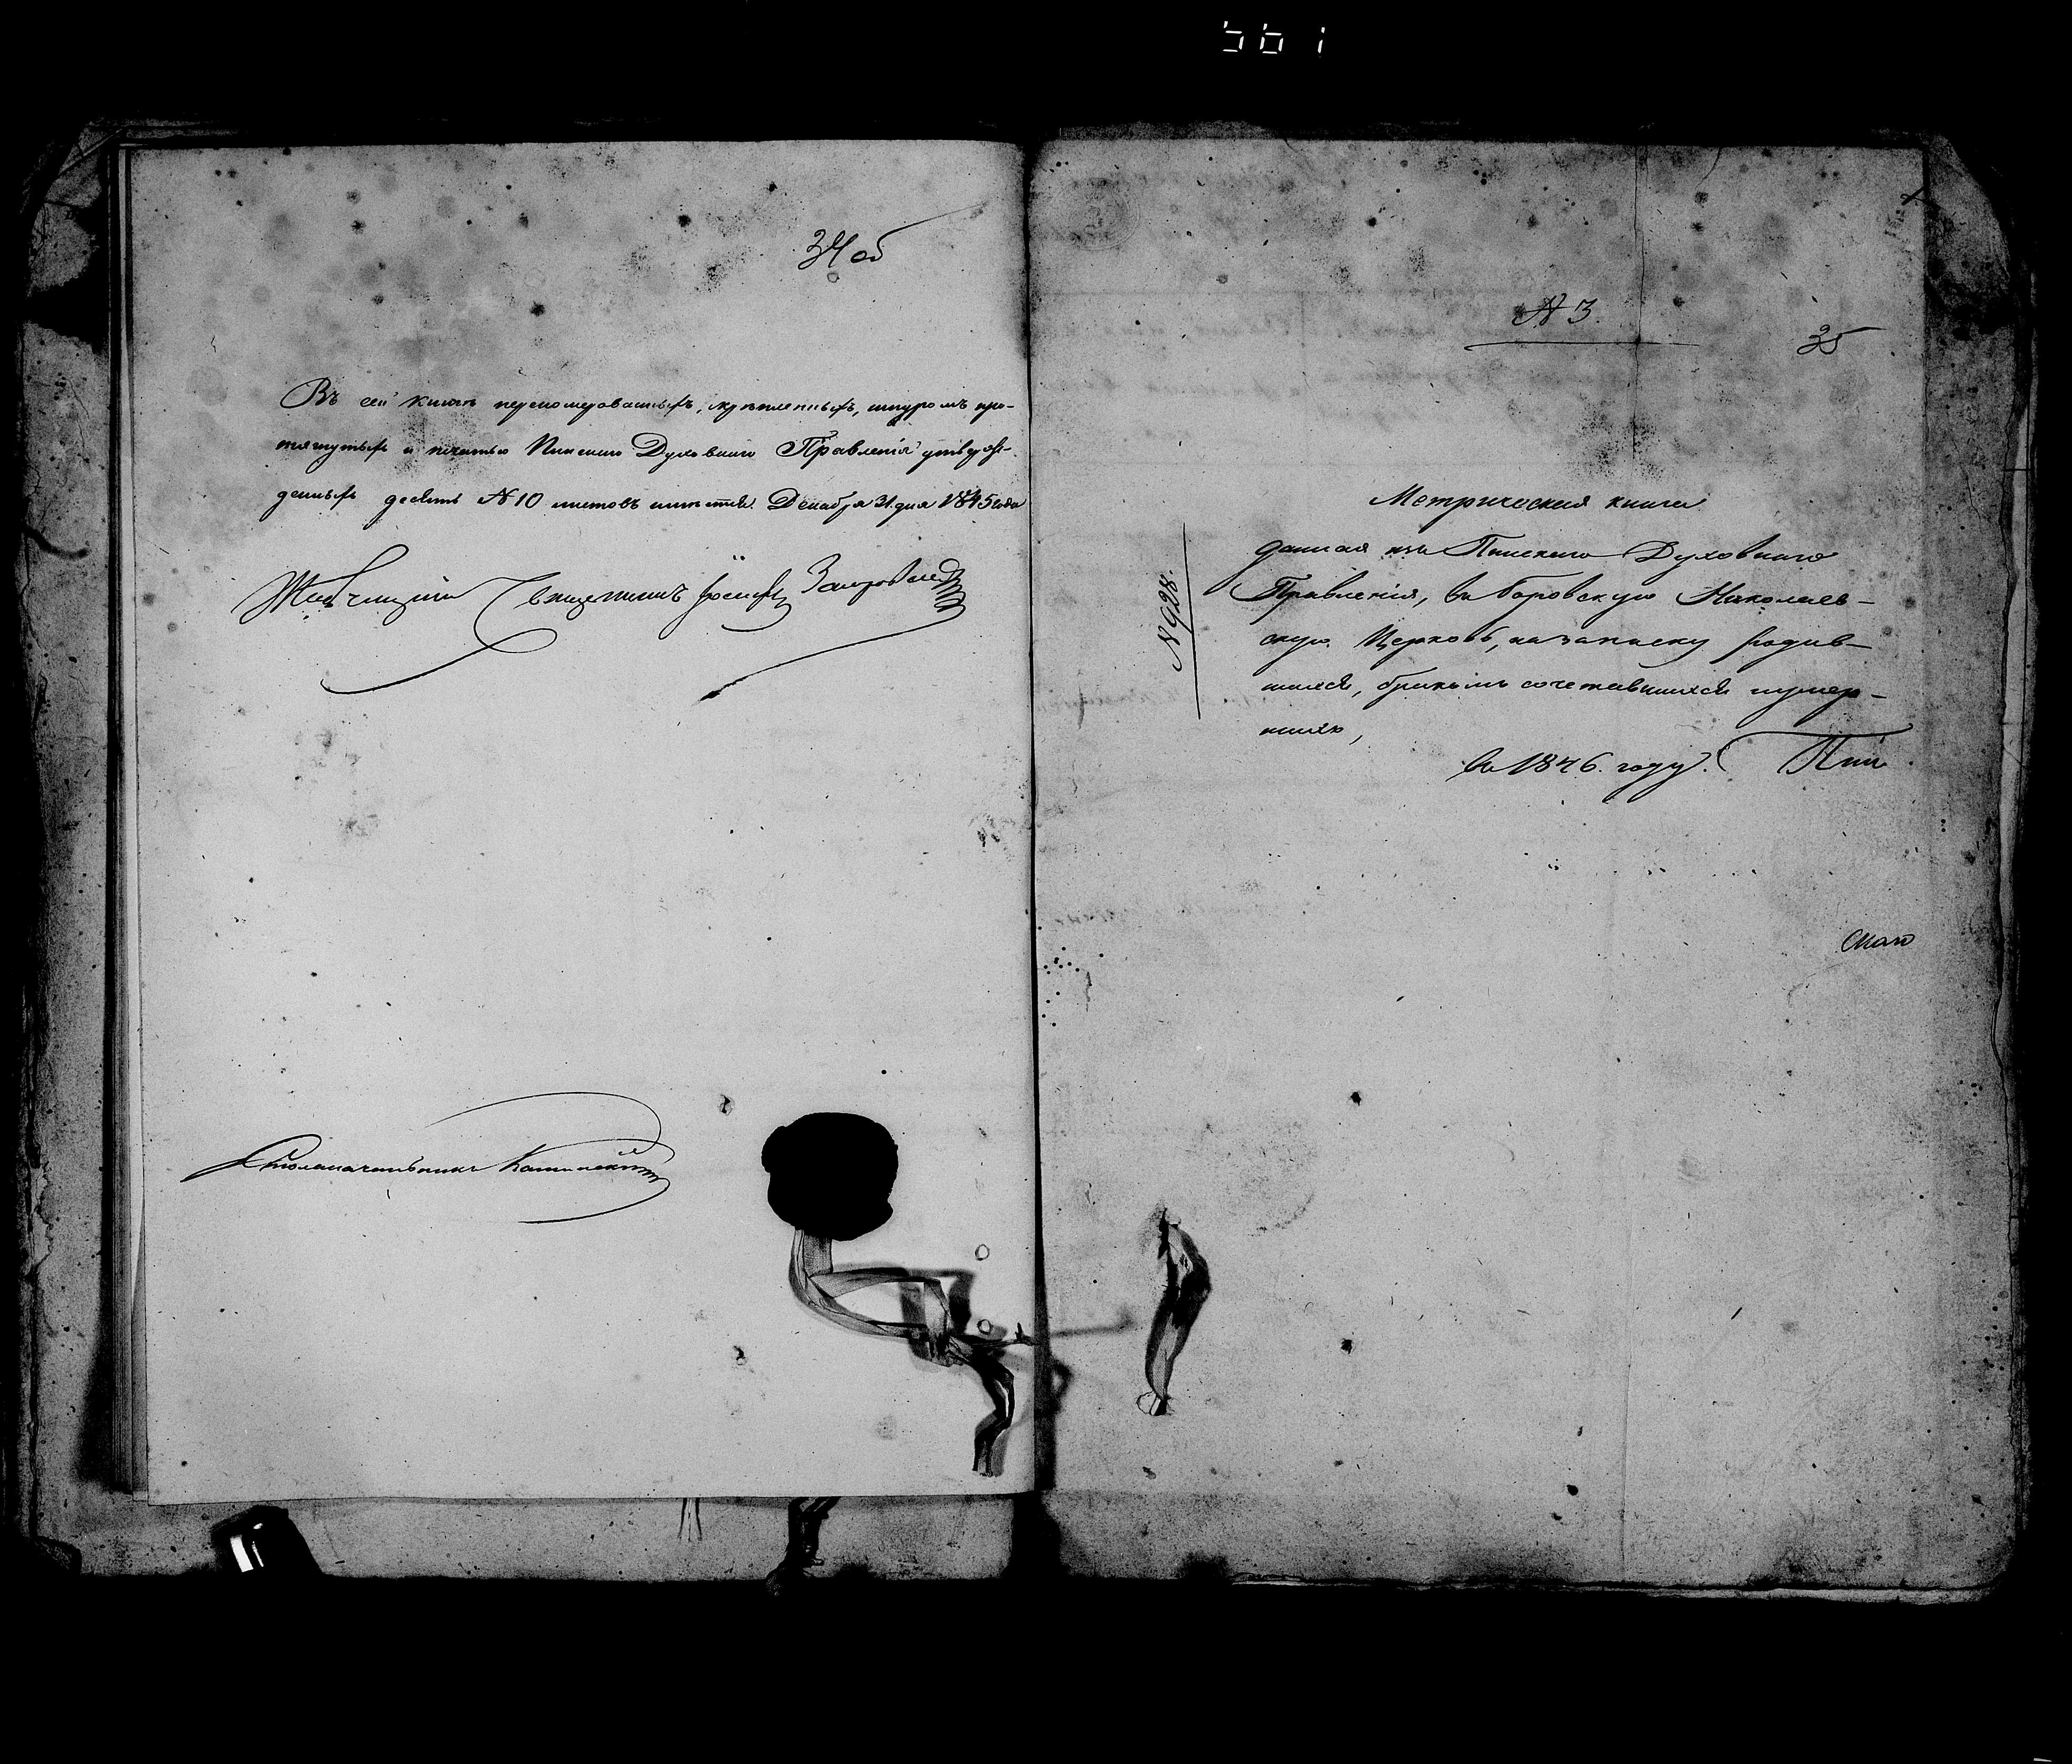 34 об
Въ сей книгѣ переномерованныхъ, скрѣпленныхъ, шнуромъ про-
тянутыхъ и печатью Пинскаго Духовнаго Правленія утвѣрж-
денныхъ десять №10 листовъ имѣется. Декабря 31 дня 1845 года
Священникъ Іосифъ
Столоначальникъ
№ 3.
35
Метрическая книга
№ 928.
данная изъ Пинскаго Духовнаго
Правленія, въ Боровскую Николаев-
скую Церковь, на записку родив-
шихся, бракомъ сочетавшихся и умер-
шихъ,
въ 1846. году.